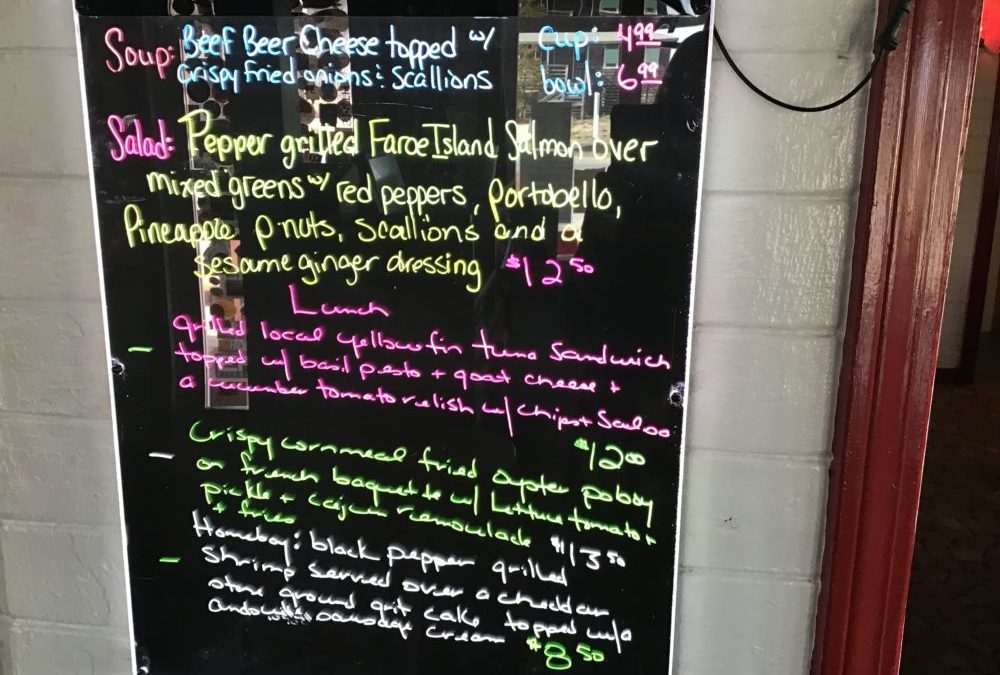 Soup: Beef Beer Cheese topped w/ cup: 4.99
Crispy fried onions : Scallions bowl: 6.99
Salad: Pepper grilled Faroe Island Salmon over
mixed greens w/ red peppers, portobello,
Pineapple p.nuts, scallions and a
sesame ginger dressing $12.50
Lunch
- grilled local yellowfin tuna Sandwich
topped w/ basil pesto + goat cheese +
a cucumber tomato relish w/ chips +
$12.00
- Crispy cornmeal fried oyster poboy
on french baguette w/ lettuce tomato +
pickle + cajun remoulade
+ fries $13.50
- Homeboy: black pepper grilled
Shrimp served over a cheddar
stone ground grit cake topped w/a
andouille sausage cream $8.50